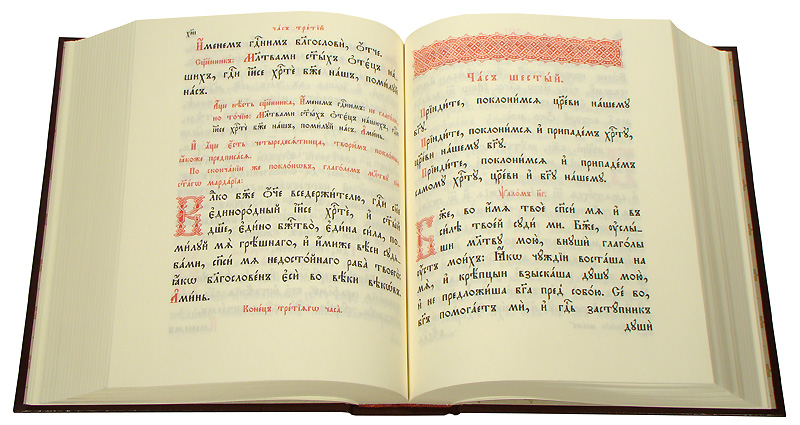 часъ тре́тїй
И҆́менемъ гдⷭ҇нимъ благословѝ, ѻ҆́тче.
Сщ҃е́нникъ: Мл҃твами ст҃ы́хъ ѻ҆те́цъ на-
шихъ, гдⷭ҇и і҆и҃се хрⷭ҇тѐ бж҃е на́шъ, поми́лꙋй
на́съ.
А҆́ще нѣ́сть сщ҃е́нника, И҆́менемъ гдⷭ҇нимъ: не глаго́лем,
но то́чїю: Мл҃твами ст҃ы́хъ ѻ҆те́цъ на́шихъ, гдⷭ҇и
і҆и҃се хрⷭ҇тѐ бж҃е на́шъ, поми́лꙋй на́съ. А҆ми́нь.
И҆ а҆́ще є҆́сть четыредесѧ́тница, твори́мъ покло́ны,
ꙗ҆́коже предписа́сѧ.
По сконча́нїи же покло́нѡвъ, глаго́лемъ мл҃твꙋ сїю̀
ст҃а́гѡ марда́рїа:
Влⷣко бж҃е ѻ҆́ч҃е вседержи́телю, гдⷭ҇и сн҃е
є҆диноро́дный і҆и҃се хрⷭ҇тѐ, и҆ ст҃ы́й
дш҃е, є҆ди́но бж҃тво̀, є҆ди́на си́ла, по-
ми́лꙋй мѧ̀ грѣ́шнаго, и҆ и҆́миже вѣ́си сꙋдь-
ба́ми, сп҃сѝ мѧ̀ недосто́йнаго раба̀ твоего̀:
ꙗ҆́кѡ благослове́нъ є҆сѝ во вѣ́ки вѣкѡ́въ.
А҆ми́нь.
Коне́цъ тре́тїѧгѡ часа̀.
Ча́съ шесты́й.
Прїиди́те, поклони́мсѧ цр҃е́ви на́шемꙋ
бг҃ꙋ.
Прїиди́те, поклони́мсѧ и҆ припаде́мъ хрⷭ҇тꙋ̀,
цр҃е́ви на́шемꙋ бг҃ꙋ.
Прїиди́те, поклони́мсѧ и҆ припаде́мъ
самомꙋ̀ хрⷭ҇тꙋ̀, цр҃е́ви и҆ бг҃ꙋ на́шемꙋ.
Ѱало́мъ н҃г.
Бж҃е, во и҆́мѧ твоѐ сп҃си́ мѧ и҆ въ
си́лѣ твое́й сꙋди́ ми. Бж҃е, ᲂу҆слы́-
ши мл҃твꙋ мою̀, внꙋшѝ глаго́лы
ᲂу҆́стъ мои́хъ: Ꙗ҆́кѡ чꙋ́ждїи воста́ша на
мѧ̀, и҆ крѣ́пцыи взыска́ша дꙋ́шꙋ мою̀,
и҆ не предложи́ша бг҃а пред̾ собо́ю. Се́ бо,
бг҃ъ помога́етъ мѝ, и҆ гдⷭ҇ь застꙋ́пникъ
дꙋшѝ